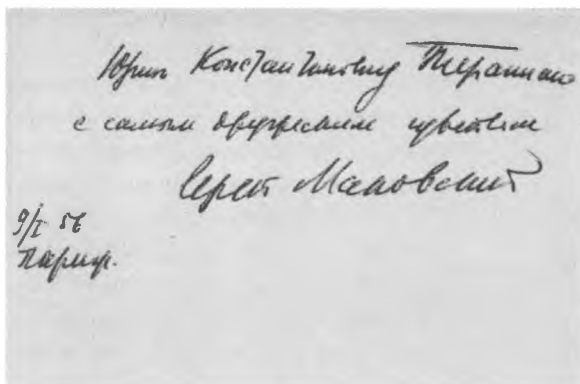 Юрию Константиновичу Терапиано
с самым дружеским чувством
Сергей Маковский
9/I 56
Париж.